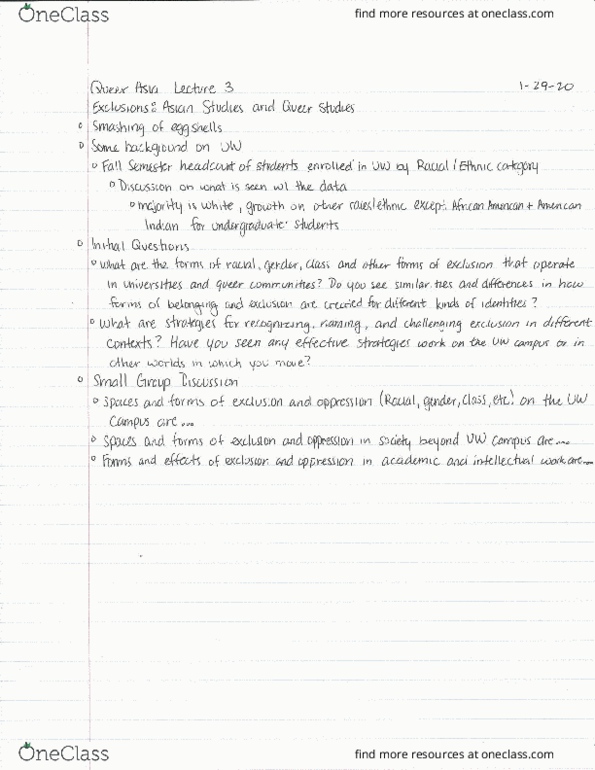 OneClass find more resources at oneclass.com
Queer Asia Lecture 3 1-29-20
Exclusions: Asian Studies and Queer Studies
Smashing of eggshells
Some background on UW
Fall Semester headcount of students enrolled in UW by Racial/Ethnic category
Discussion on what is seen w/ the data
majority is white, growth on other races/ethnic except African American + American
Indian for undergraduate students
Initial Questions
What are the forms of racial, gender, class and other forms of exclusion that operate
in universities and queer communities? Do you see similarities and differences in how
forms of belonging and exclusion are created for different kinds of identities?
What are strategies for recognizing, naming, and challenging exclusion in different
contexts? Have you seen any effective strategies work on the UW campus or in
other worlds in which you move?
Small Group Discussion
Spaces and forms of exclusion and oppression (Racial, gender, class, etc) on the UW
Campus are...
Spaces and forms of exclusion and oppression in society beyond UW campus are...
Forms and effects of exclusion and oppression in academic and intellectual work are...
OneClass find more resources at oneclass.com